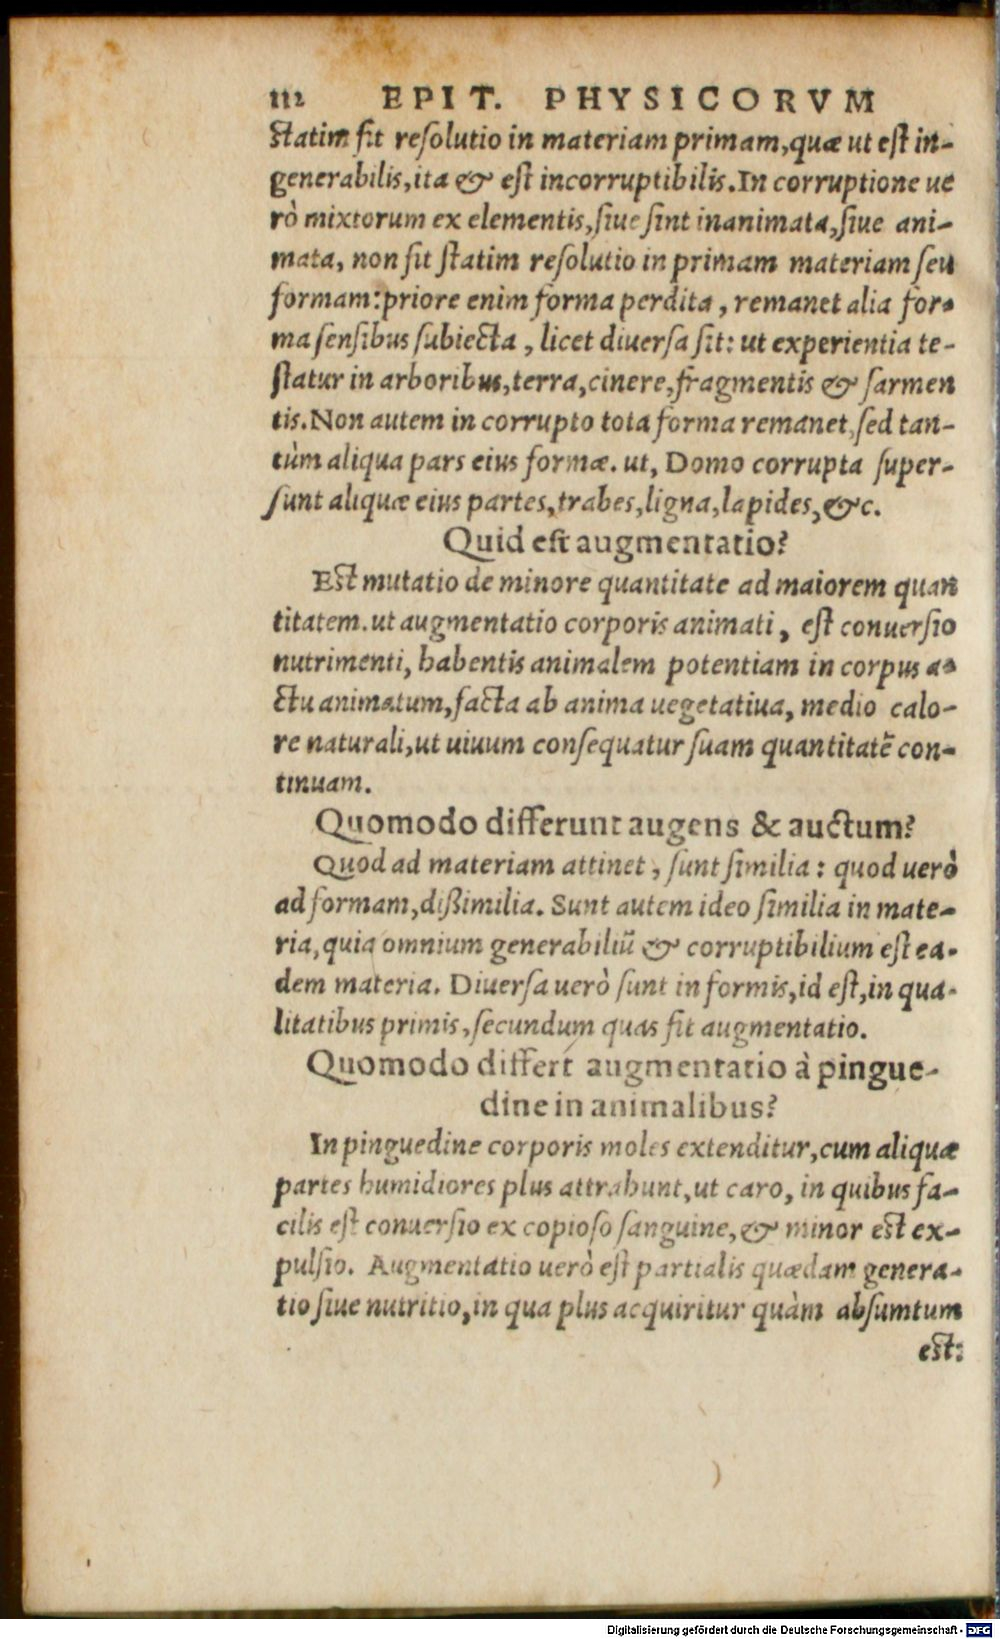 112 EPIT. PHYSICORVM
statim fit reſolutio in materiam primam, quæ ut eſt in-
generabilis, ita & eſt incorruptibilis. In corruptione ue
rò mixtorum ex elementis, ſiue ſint inanimata, ſiue ani-
mata, non fit ſtatim reſolutio in primam materiam ſeu
formam: priore enim forma perdita, remanet alia for-
ma ſenſibus ſubiecta, licet diuerſa ſit: ut experientia te-
ſtatur in arboribus, terra, cinere, fragmentis & ſarmen
tis. Non autem in corrupto tota forma remanet, ſed tan-
tùm aliqua pars eius formæ. ut, Domo corrupta ſuper-
ſunt aliquæ eius partes, trabes, ligna, lapides, &c.
Quid eſt augmentatio?
Eſt mutatio de minore quantitate ad maiorem quan
titatem. ut augmentatio corporis animati, eſt conuerſio
nutrimenti, habentis animalem potentiam in corpus a-
ctu animatum, facta ab anima uegetatiua, medio calo-
re naturali, ut uiuum conſequatur ſuam quantitatē con-
tinuam.
Quomodo differunt augens & auctum?
Quod ad materiam attinet, ſunt ſimilia: quod uerò
ad formam, dißimilia. Sunt autem ideo ſimilia in mate-
ria, quia omnium generabiliū & corruptibilium eſt ea-
dem materia. Diuerſa uerò ſunt in formis, id eſt, in qua-
litatibus primis, ſecundum quas fit augmentatio.
Quomodo differt augmentatio à pingue-
dine in animalibus?
In pinguedine corporis moles extenditur, cum aliquæ
partes humidiores plus attrahunt, ut caro, in quibus fa-
cilis eſt conuerſio ex copioſo ſanguine, & minor eſt ex-
pulſio. Augmentatio uerò eſt partialis quædam genera-
tio ſiue nutritio, in qua plus acquiritur quàm abſumtum
eſt:
Digitalisierung gefördert durch die Deutsche Forschungsgemeinschaft - DFG